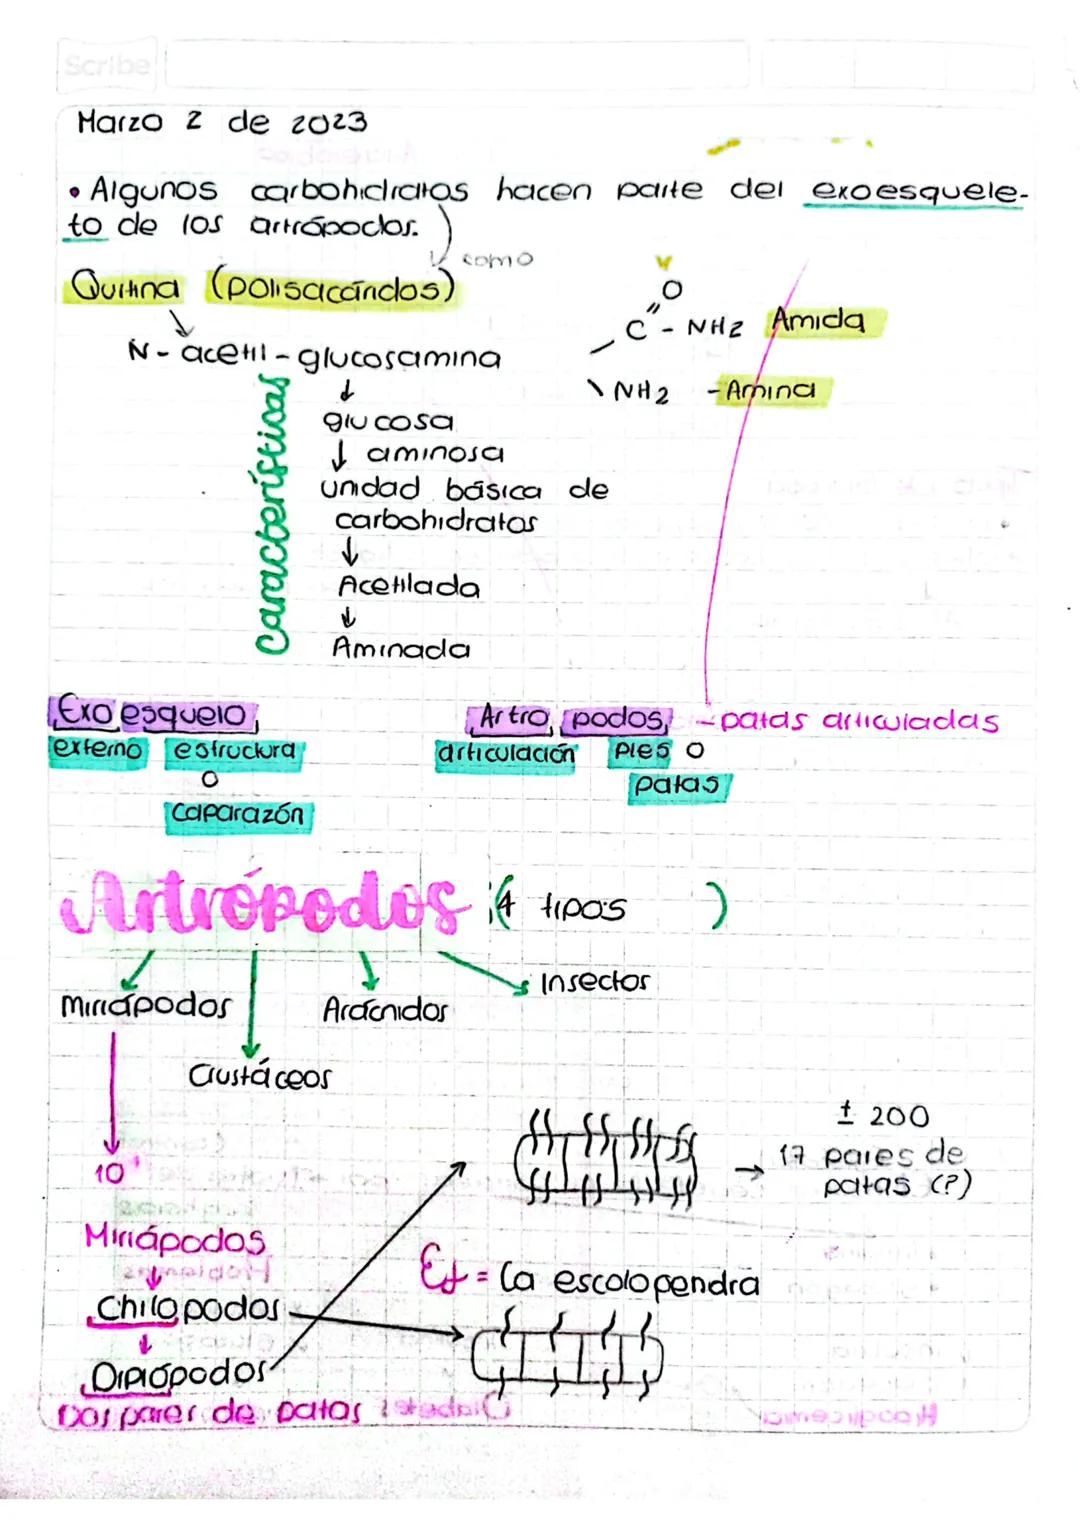 Scribe
Marzo 2 de 2023
• Algunos carbohidratos hacen parte del exoesquele-
to de los artrópodos.
como
Quitina (polisacáridos)
N - acetil - glucosamina
Características
glucosa
aminosa
unidad básica de
carbohidratos
Acetilada
Aminada
O
C - NH2 Amida
NH2 - Amina
Exo esquelo
externo estructura
o
caparazón
Artro podos - patas articuladas
articulación pies o
patas
Artrópodos (4 tipos )
Miriápodos
Crustáceos
Arácnidos
Insectos
10
Miriápodos
Chilopodos
Diplópodos
Dos pares de patas
± 200
17 pares de
patas (?)
Ej = La escolopendra